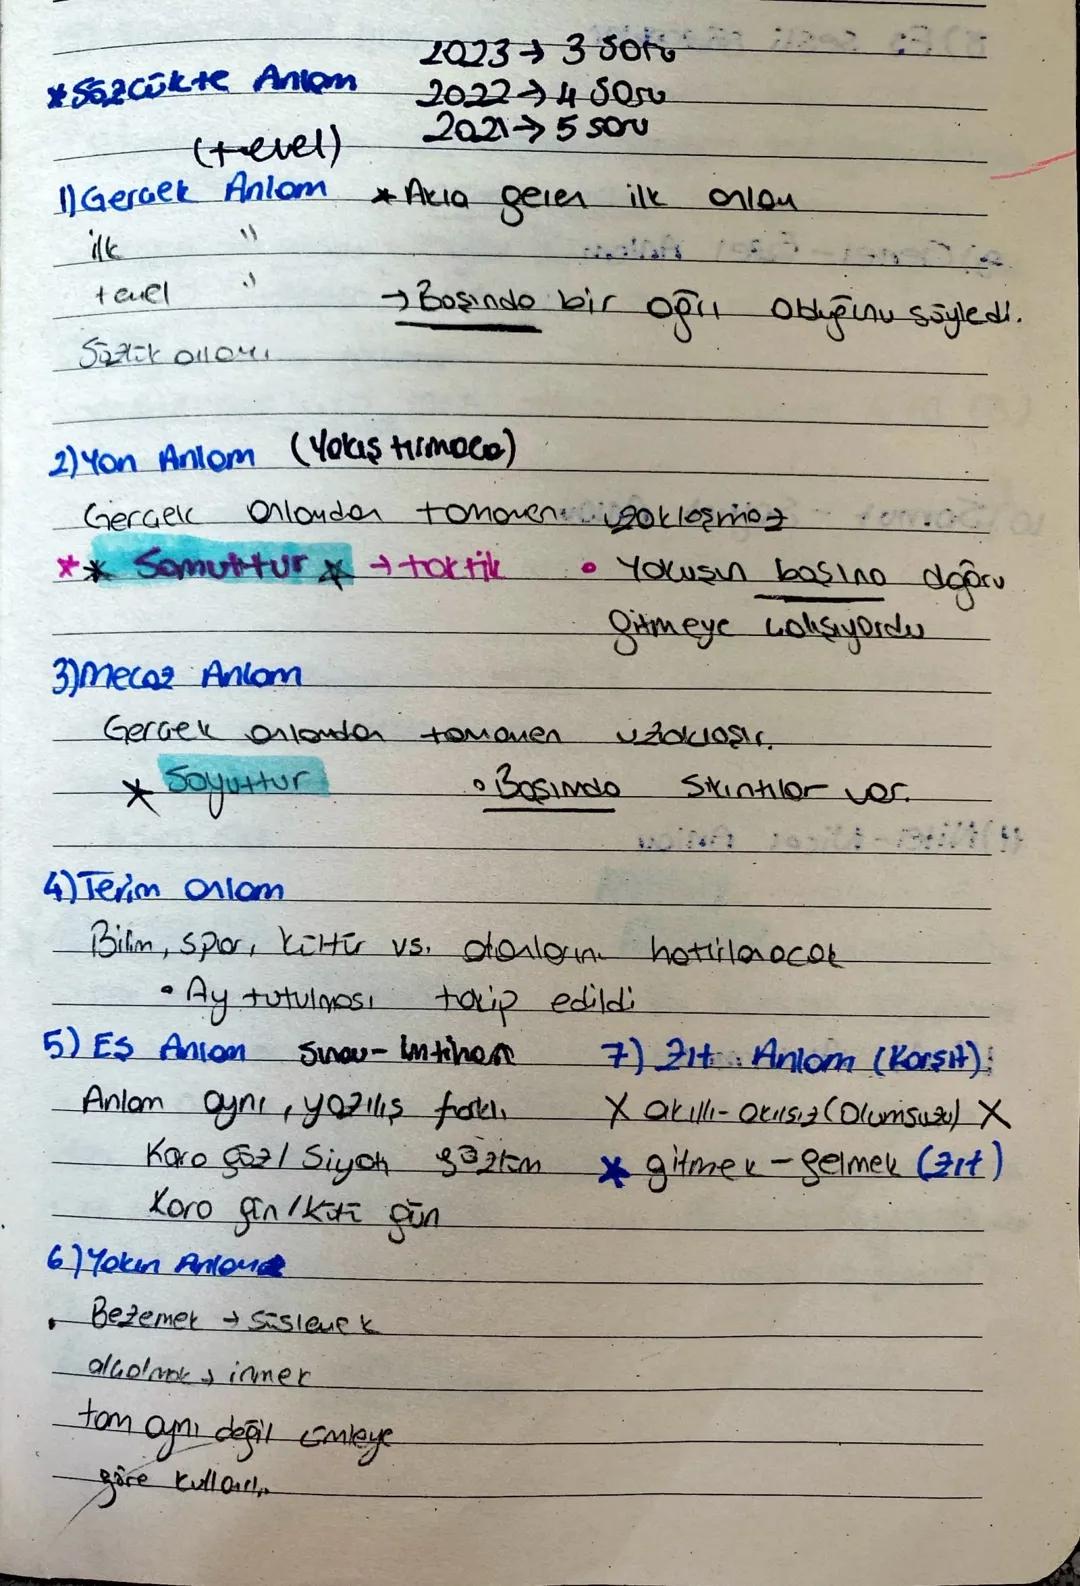 2023 → 3 soru
*Sözcükte Anlam 2022 → 4 soru
2021 → 5 soru
1) Gerçek Anlam * Akla gelen ilk anlam
ilk "
temel " → Başında bir ağrı olduğunu söyledi.
Sözlük anlamı
2) Yan Anlam (Yakıştırmaca)
Gerçek anlamdan tamamen uzaklaşmaz
** Somuttur * → taktik • Yokuşun başına doğru
gitmeye çalışıyordu
3) Mecaz Anlam
Gerçek anlamdan tamamen uzaklaşır.
* Soyuttur • Başında sıkıntılar var.
4) Terim anlam
Bilim, spor, kültür vs. alanlarını hatırlatacak
• Ay tutulması takip edildi
5) Eş Anlam Sınav - İmtihan
Anlam aynı, yazılış farklı
Kara göz / Siyah
Kara gün / Kötü gün
6) Yakın Anlam
• Bezemek → Süslemek
alçalmak → inmek
tam aynı değil cümleye
göre kullanılır.
7) Zıt Anlam (Karşıt):
X akıllı - akılsız (Olumsuzu) X
* gitmek - gelmek (zıt)